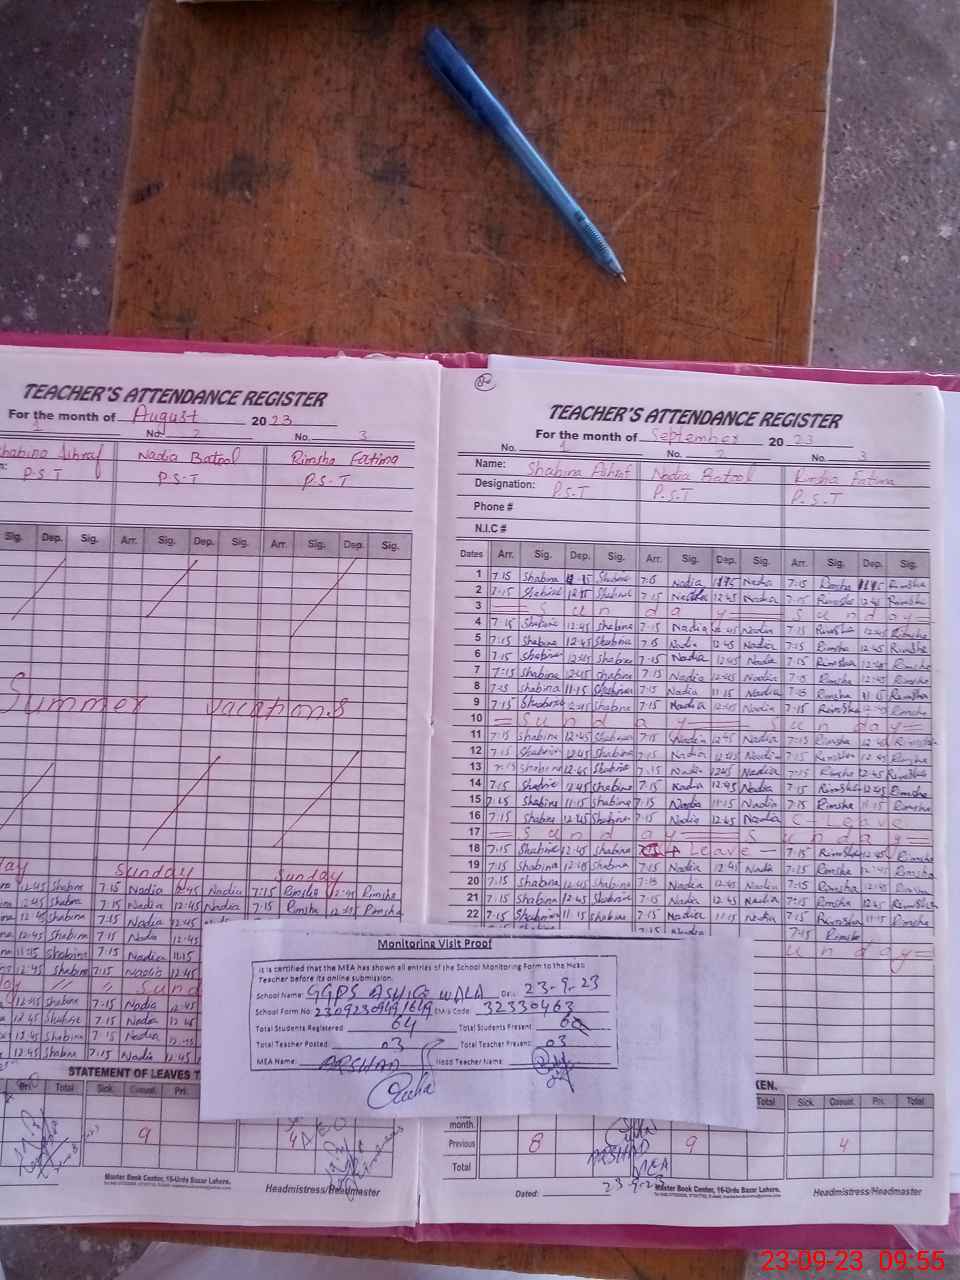 TEACHER'S ATTENDANCE REGISTER
For the month of August 2023
No. 2 No. 3
Shabina Ashraf Nadia Batool Rimsha Fatima
P.S.T P.S.T P.S.T
Sig. Dep. Sig. Arr. Sig. Dep. Sig. Arr. Sig. Dep. Sig.
Summer vacations
Sunday Sunday
12:45 Shabina 7:15 Nadia 12:45 Nadia 7:15 Rimsha 12:45 Rimsha
12:45 Shabina 7:15 Nadia 12:45 Nadia 7:15 Rimsha 12:45 Rimsha
12:45 Shabina 7:15 Nadia 12:45
12:45 Shabina 7:15 Nadia 12:45
11:15 Shabina 7:15 Nadia 11:15
12:45 Shabina 7:15 Nadia 12:45
12:45 Shabina 7:15 Nadia 12:45
12:45 Shabina 7:15 Nadia 12:45
12:45 Shabina 7:15 Nadia 12:45
12:45 Shabina 7:15 Nadia 12:45
STATEMENT OF LEAVES T
Pri. Total Sick. Casual. Pri.
9 4
Master Book Center, 16-Urdu Bazar Lahore.
Headmistress/Headmaster
TEACHER'S ATTENDANCE REGISTER
For the month of September 2023
No. 1 No. 2 No. 3
Name: Shabina Ashraf Nadia Batool Rimsha Fatima
Designation: P.S.T P.S.T P.S.T
Phone #
N.I.C #
Dates Arr. Sig. Dep. Sig. Arr. Sig. Dep. Sig. Arr. Sig. Dep. Sig.
1 7:15 Shabina Shabina 7:15 Nadia Nadia 7:15 Rimsha Rimsha
2 7:15 Shabina 12:45 Shabina 7:15 Nadia 12:45 Nadia 7:15 Rimsha 12:45 Rimsha
3 Sunday Sunday
4 7:15 Shabina 12:45 Shabina 7:15 Nadia 12:45 Nadia 7:15 Rimsha 12:45 Rimsha
5 7:15 Shabina 12:45 Shabina 7:15 Nadia 12:45 Nadia 7:15 Rimsha 12:45 Rimsha
6 7:15 Shabina 12:45 Shabina 7:15 Nadia 12:45 Nadia 7:15 Rimsha 12:45 Rimsha
7 7:15 Shabina 12:45 Shabina 7:15 Nadia 12:45 Nadia 7:15 Rimsha 12:45 Rimsha
8 7:15 Shabina 11:15 Shabina 7:15 Nadia 11:15 Nadia 7:15 Rimsha 11:15 Rimsha
9 7:15 Shabina 12:45 Shabina 7:15 Nadia 12:45 Nadia 7:15 Rimsha 12:45 Rimsha
10 Sunday Sunday
11 7:15 Shabina 12:45 Shabina 7:15 Nadia 12:45 Nadia 7:15 Rimsha 12:45 Rimsha
12 7:15 Shabina 12:45 Shabina 7:15 Nadia 12:45 Nadia 7:15 Rimsha 12:45 Rimsha
13 7:15 Shabina 12:45 Shabina 7:15 Nadia 12:45 Nadia 7:15 Rimsha 12:45 Rimsha
14 7:15 Shabina 12:45 Shabina 7:15 Nadia 12:45 Nadia 7:15 Rimsha 12:45 Rimsha
15 7:15 Shabina 11:15 Shabina 7:15 Nadia 11:15 Nadia 7:15 Rimsha 11:15 Rimsha
16 7:15 Shabina 12:45 Shabina 7:15 Nadia 12:45 Nadia C-Leave
17 Sunday Sunday
18 7:15 Shabina 12:45 Shabina Leave 7:15 Rimsha 12:45 Rimsha
19 7:15 Shabina 12:45 Shabina 7:15 Nadia 12:45 Nadia 7:15 Rimsha 12:45 Rimsha
20 7:15 Shabina 12:45 Shabina 7:15 Nadia 12:45 Nadia 7:15 Rimsha 12:45 Rimsha
21 7:15 Shabina 12:45 Shabina 7:15 Nadia 12:45 Nadia 7:15 Rimsha 12:45 Rimsha
22 7:15 Shabina 11:15 Shabina 7:15 Nadia 11:15 Nadia 7:15 Rimsha 11:15 Rimsha
Nadia 7:45 Rimsha
unday
Monitoring Visit Proof
It is certified that the MEA has shown all entries of the School Monitoring Form to the Head
Teacher before its online submission.
School Name: GGPS ASHIQ WALA Date: 23-9-23
School Form No: EMIS Code: 32330463
Total Students Registered: 64 Total Students Present:
Total Teacher Posted: 03 Total Teacher Present: 03
MEA Name: ARSHAD Head Teacher Name:
KEN.
Total Sick. Casual. Pri. Total
month.
Previous 8 9 4
Total
ARSHAD
MEA
23-9-23
Dated:
Master Book Center, 16-Urdu Bazar Lahore.
Headmistress/Headmaster
23-09-23 09:55